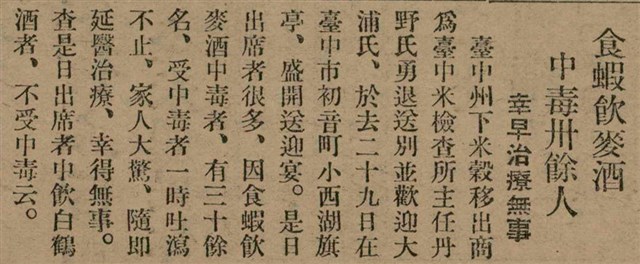 食蝦飲麥酒
中毒卅餘人
幸早治療無事
臺中州下米穀移出商
爲臺中米檢查所主任丹
野氏勇退送別並歡迎大
浦氏、於去二十九日在
臺中市初音町小西湖旗
亭、盛開送迎宴。是日
出席者很多、因食蝦飲
麥酒中毒者、有三十餘
名、受中毒者一時吐瀉
不止、家人大驚、隨即
延醫治療、幸得無事。
查是日出席者中飲白鶴
酒者、不受中毒云。